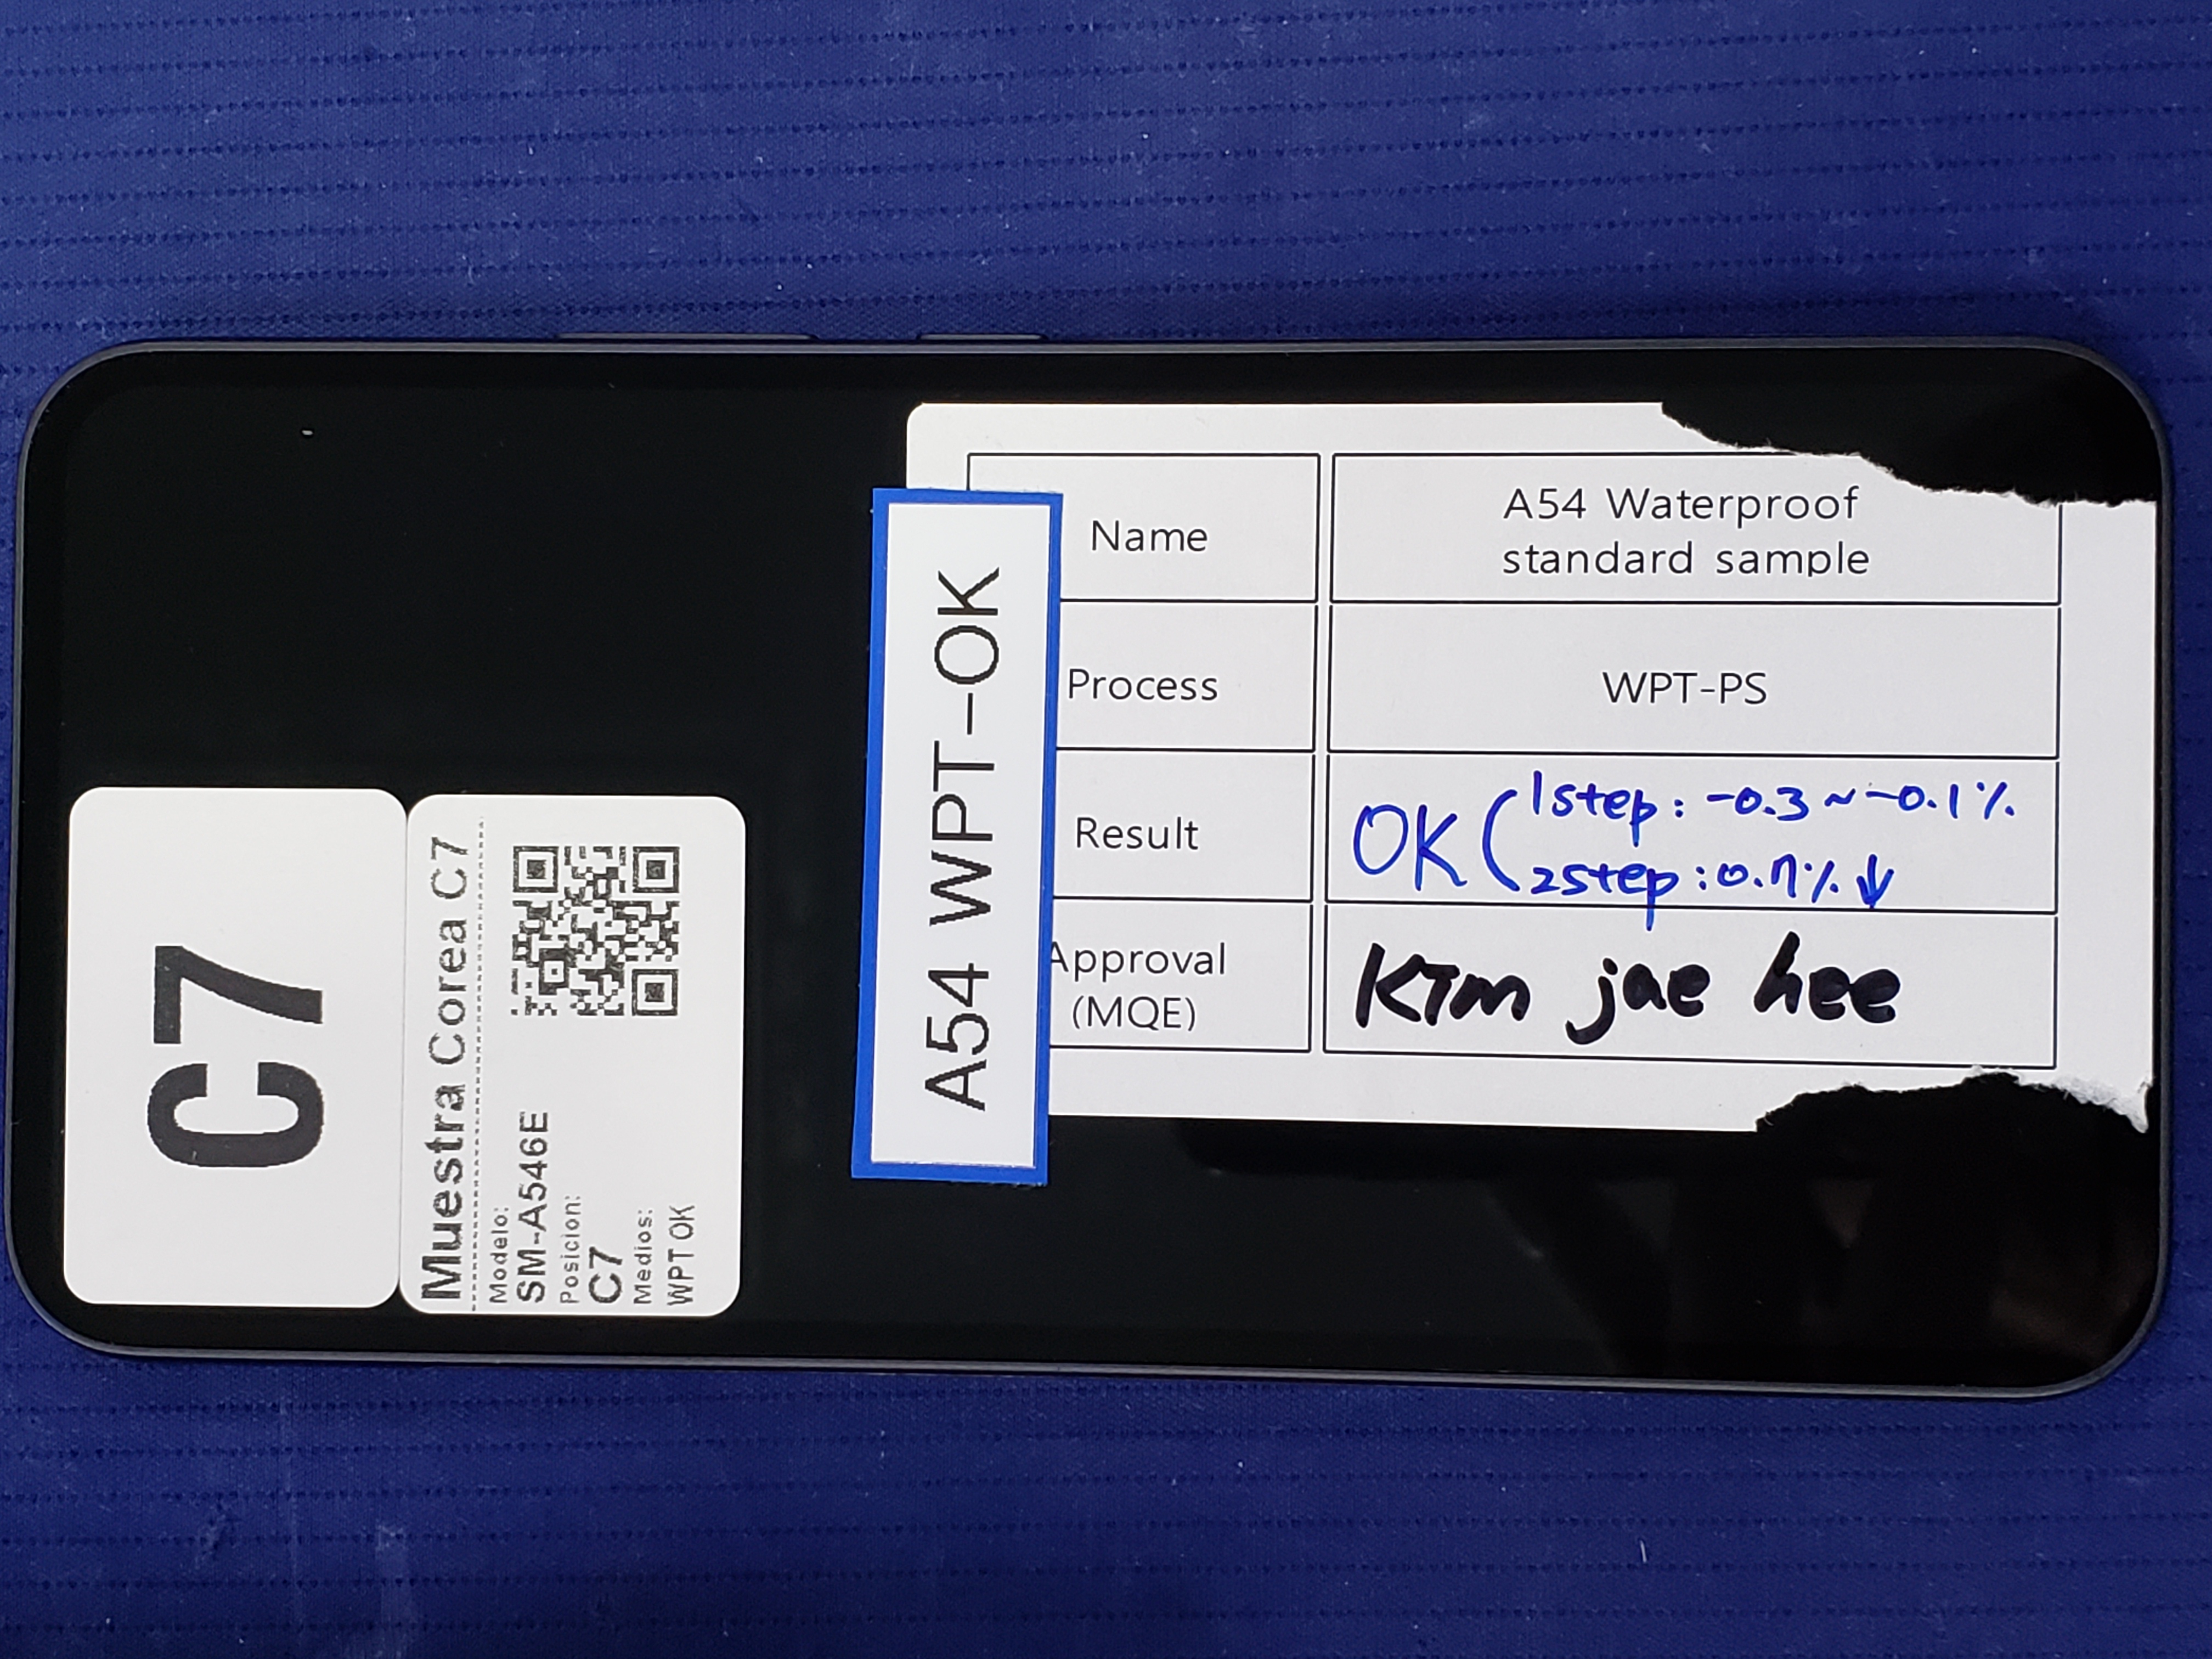 C7
Muestra Corea C7
Modelo:
SM-A546E
Posicion:
C7
Medios:
WPT OK
A54 WPT-OK
Name
A54 Waterproof
standard sample
Process
WPT-PS
Result
OK (1step: -0.3 ~ -0.1%
(2step: 0.7%↓
Approval
(MQE)
KIm jae hee